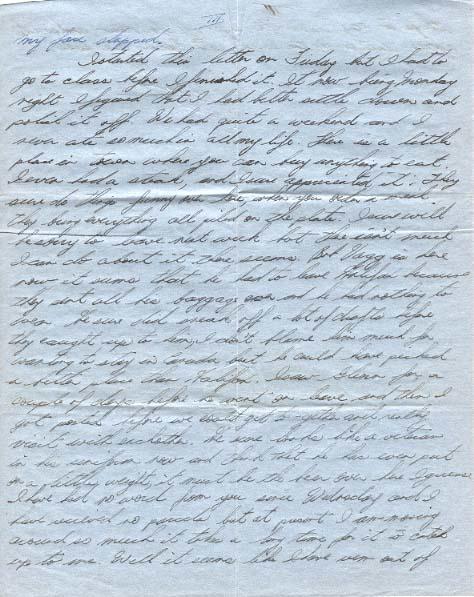 III
my face stopped.
I started this letter on Friday but I had to
go to class before I finished it. It now being Monday
night I figured that I had better settle down and
polish it off. We had quite a weekend and I
never ate so much in all my life, there is a little
place in town where you can buy anything to eat.
I even had a steak and I sure appreciated it; They
sure do things funny over here when you order a meal
they bring everything all piled on the plate. I sure will
be sorry to leave next week but there isn't much
I can do about it there seems. Bob is here
now it seems that he had to leave Halifax because
they sent all his baggage over and he had nothing to
wear. He sure did sneak off a lot of drafts before
they caught up to him, I don't blame him much for
wanting to stay in Canada but he could have picked
a better place than Halifax. I saw Glenn for a
couple of days before he went on leave and then I
got posted before we could get together and really
visit with each other. He sure looks like a veteran
in his uniform now and I think that he has even put
on a little weight, it must be the beer over here I guess.
I have had no word from you since Wednesday and I
have received no parcels but at present I am moving
around so much it takes a long time for it to catch
up to me. Well it seems like I have run out of